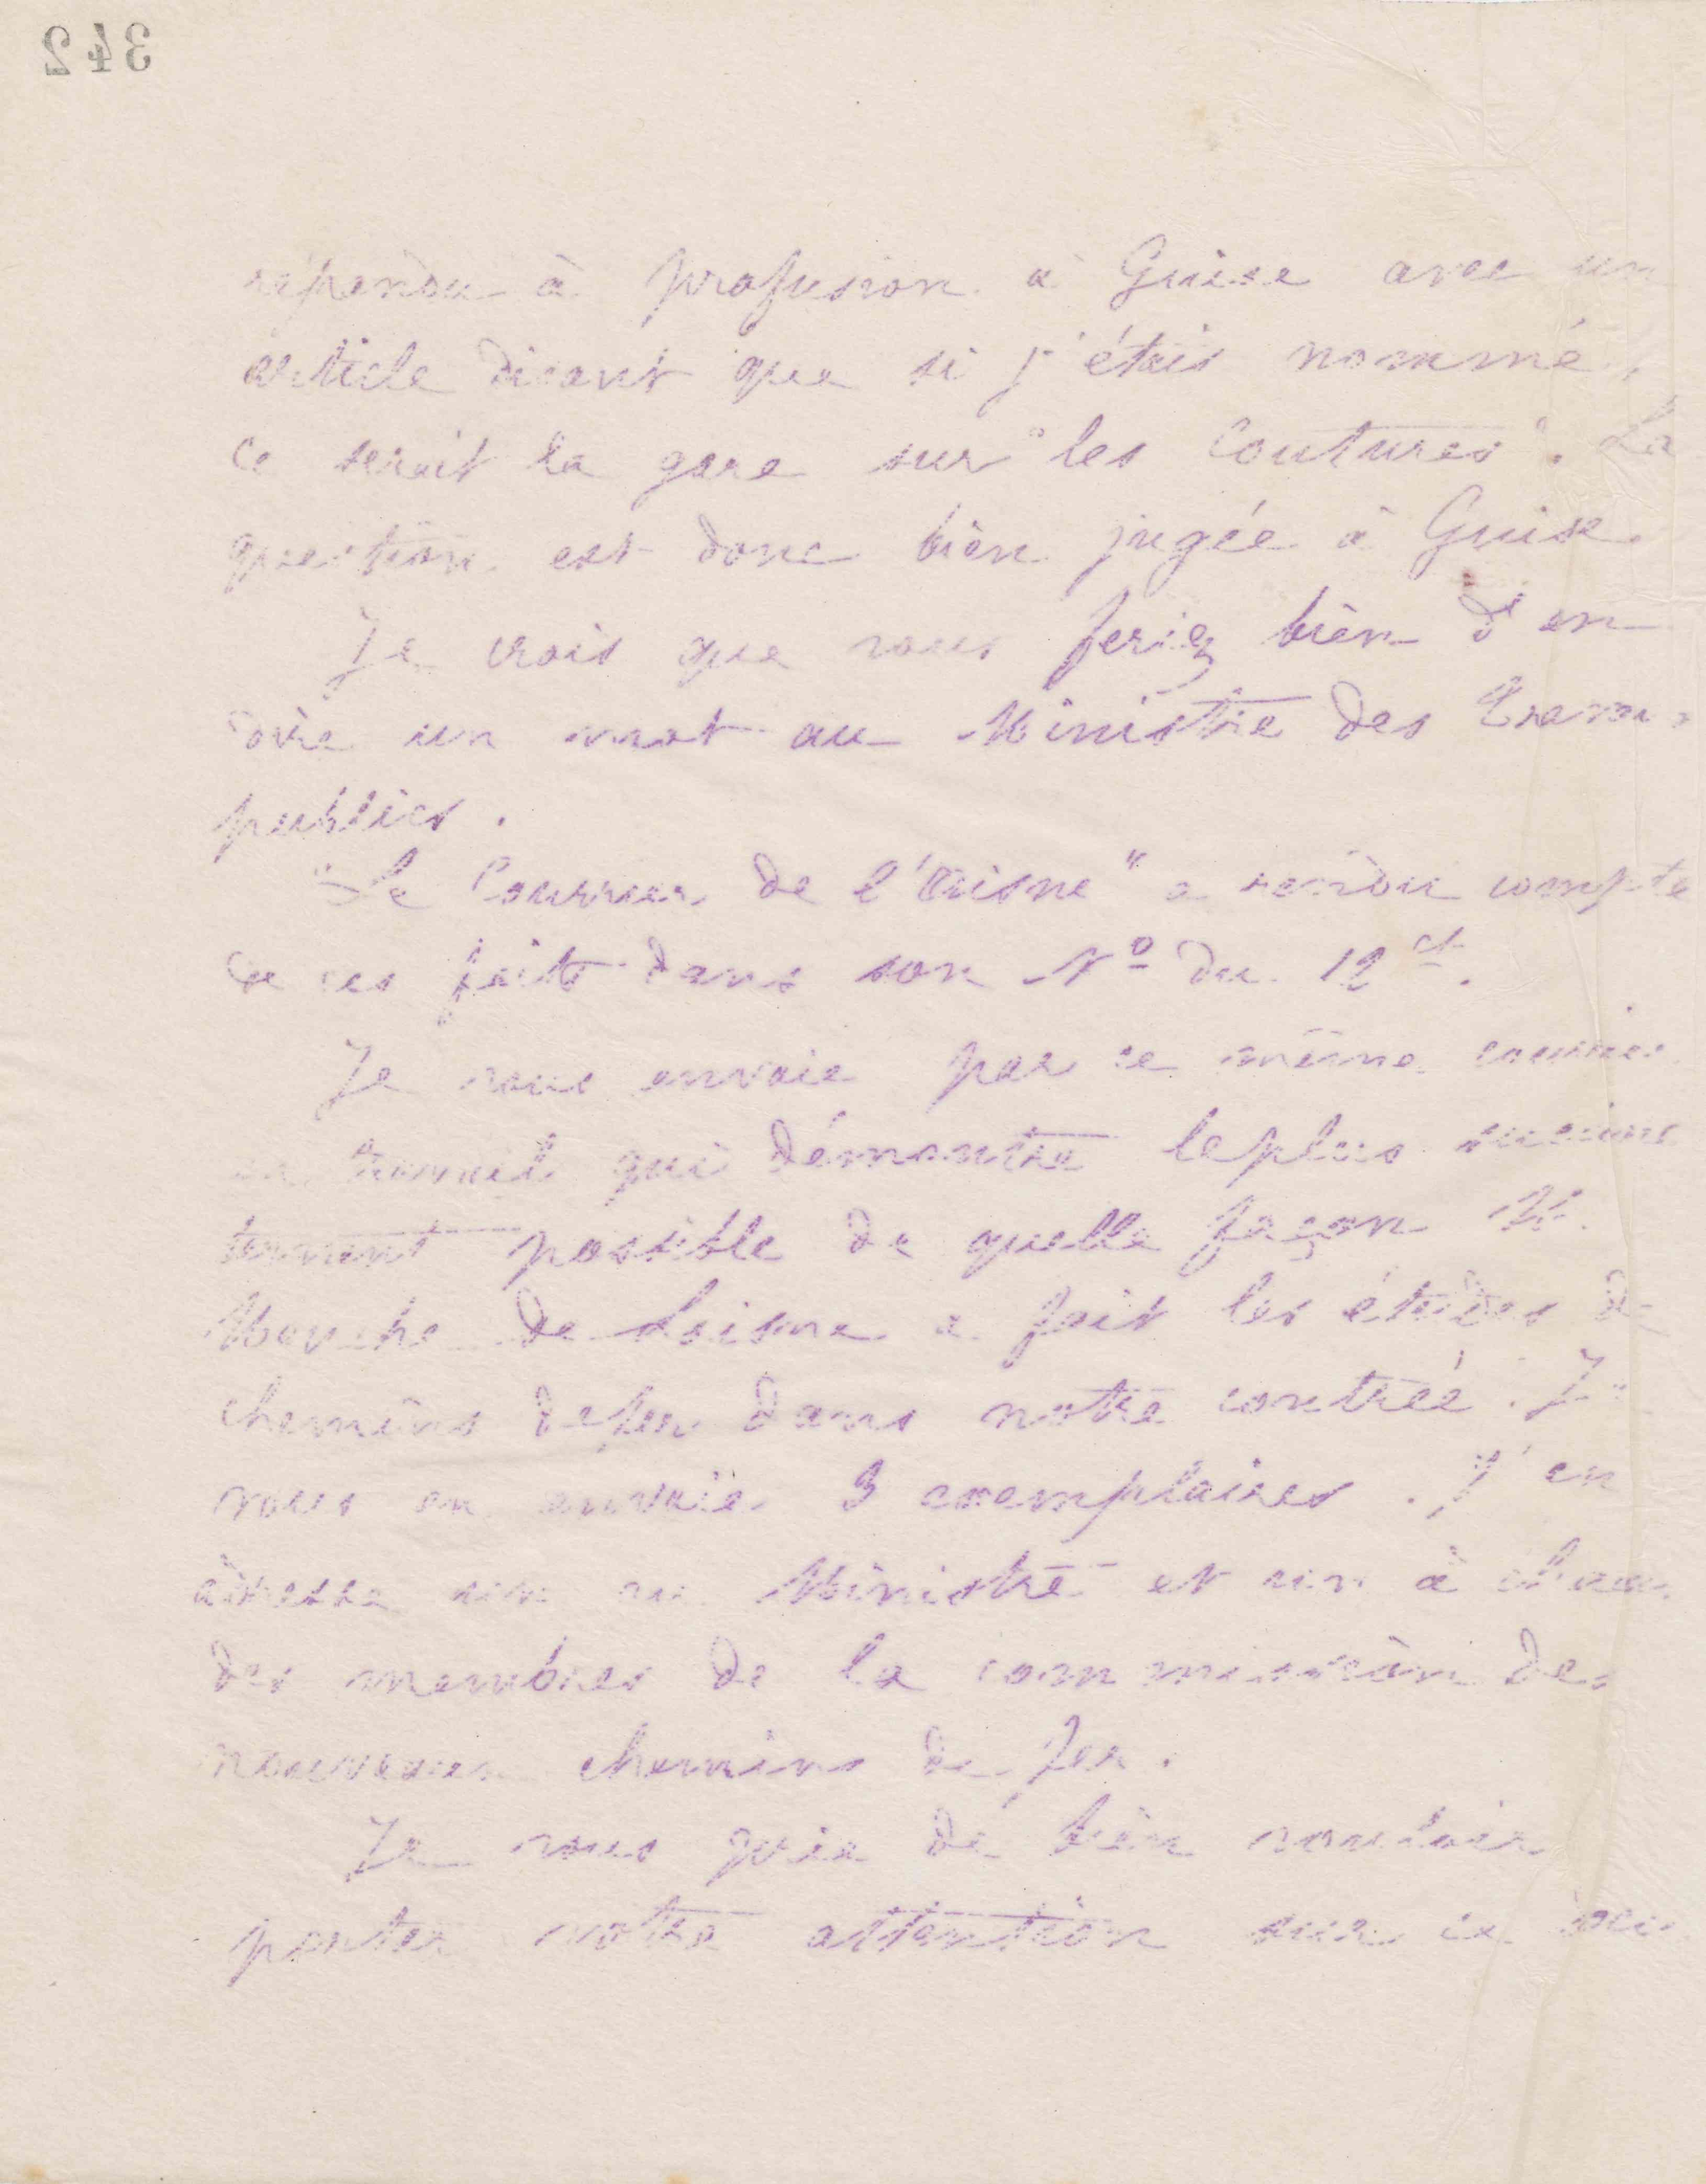 342
répandu à profusion à Guise avec un
article disant que si j'étais nommé,
ce serait la gare sur "les Coutures". La
question est donc bien jugée à Guise.
Je crois que vous feriez bien d'en
dire un mot au Ministre des Travaux
publics.
"Le Courrier de l'Aisne" a rendu compte
de ces faits dans son No du 12 ct.
Je vous envoie par ce même courrier
un travail qui démontre le plus succinc
tement possible de quelle façon M.
de a fait les études de
chemins de fer dans notre contrée. Je
vous en envoie 3 exemplaires. J'en
adresse un au Ministre et un à chacun
des membres de la commission des
nouveaux chemins de fer.
Je vous prie de bien vouloir
porter votre attention sur ce